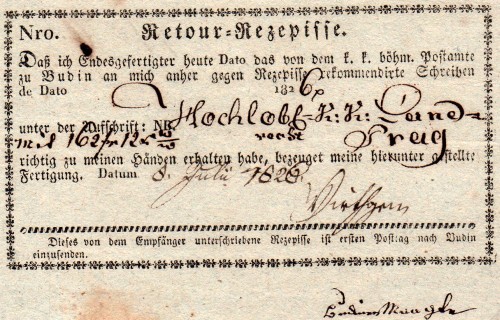 Nro. Retour-Rezepisse.
Daß ich Endesgefertigter heute Dato das von dem k. k. böhm. Postamte
zu Budin an mich anher gegen Rezepisse rekommendirte Schreiben
de Dato 1826
unter der Aufschrift: Nr. Hochlobl. K: K: Land=
recht Prag
mit 162 f 12 x
richtig zu meinen Händen erhalten habe, bezeuget meine hierunter gestellte
Fertigung. Datum 8. Julii 1826.
Dieses von dem Empfänger unterschriebene Rezepisse ist ersten Posttag nach Budin
einzusenden.